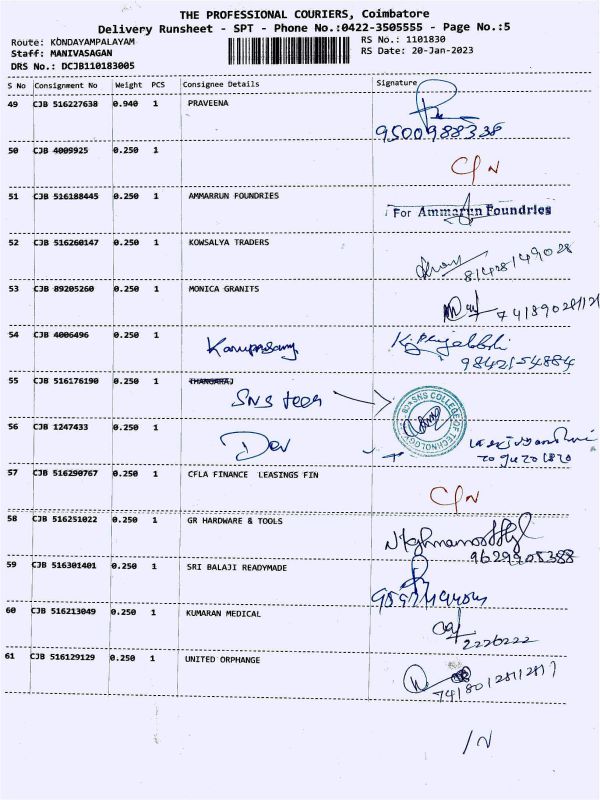 THE PROFESSIONAL COURIERS, Coimbatore
Delivery Runsheet - SPT - Phone No.:0422-3505555 - Page No.:5
Route: KONDAYAMPALAYAM
Staff: MANIVASAGAN
DRS No.: DCJB110183005
RS No.: 1101830
RS Date: 20-Jan-2023
S No Consignment No Weight PCS Consignee Details Signature
49 CJB 516227638 0.940 1 PRAVEENA
9500988338
50 CJB 4009925 0.250 1
C/N
51 CJB 516188445 0.250 1 AMMARRUN FOUNDRIES
For Ammarun Foundries
52 CJB 516260147 0.250 1 KOWSALYA TRADERS
81428149028
53 CJB 89205260 0.250 1 MONICA GRANITS
54 CJB 4006496 0.250 1 Karuppasamy
9842154884
55 CJB 516176190 0.250 1 THANGARAJ
SNS
SNS COLLEGE OF TECHNOLOGY
56 CJB 1247433 0.250 1 Dev
57 CJB 516290767 0.250 1 CFLA FINANCE LEASINGS FIN
C/N
58 CJB 516251022 0.250 1 GR HARDWARE & TOOLS
9629905388
59 CJB 516301401 0.250 1 SRI BALAJI READYMADE
60 CJB 516213049 0.250 1 KUMARAN MEDICAL
2226222
61 CJB 516129129 0.250 1 UNITED ORPHANGE
/N